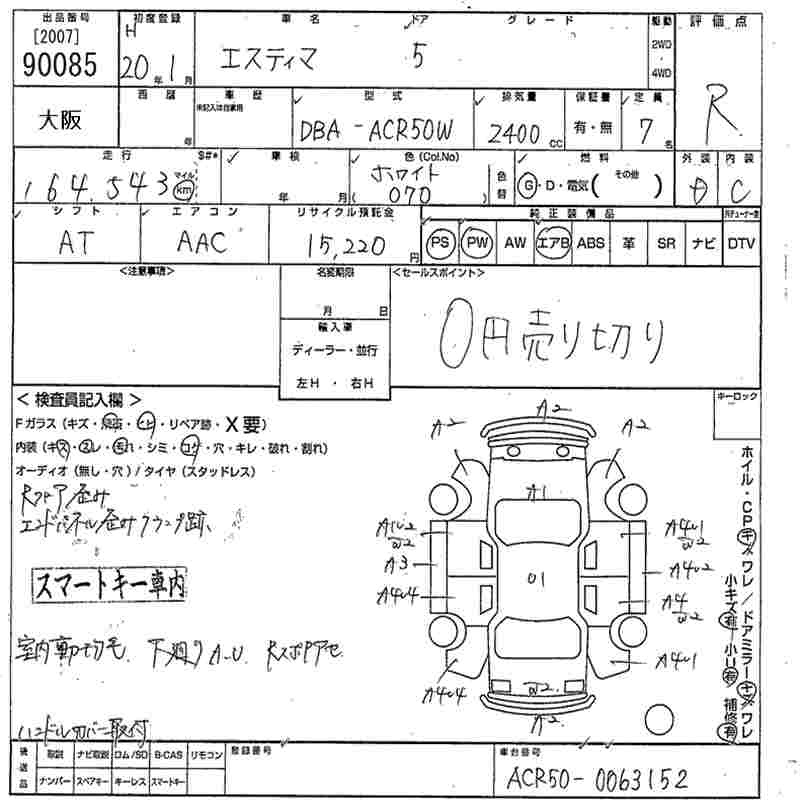 出品番号 初度登録 車名 ドア グレード 駆動 評価点
[2007] H 2WD
90085 20年 1月 エスティマ 5 ・ 4WD R
西暦 車歴 型式 排気量 保証書 定員
大阪 年 未記入は自家用 DBA-ACR50W 2400cc 有・無 7名
走行 S#* 車検 色(Col.No) 燃料 外装 内装
164,543 マイル km 年 月 ホワイト (070) 色替 G・D・電気(その他) D C
シフト エアコン リサイクル預託金 純正装備品
AT AAC 15,220円 PS PW AW エアB ABS 革 SR ナビ DTV
<注意事項> 名変期限 <セールスポイント>
月 日 0円売り切り
輸入車
ディーラー・並行
左H ・ 右H
キーロック
<検査員記入欄>
Fガラス(キズ・ ・ヒビ・リペア跡・X要)
内装(キズ・スレ・汚れ・シミ・コゲ・穴・キレ・破れ・割れ)
オーディオ(無し・穴)/タイヤ(スタッドレス)
歪み
エンドパネル歪みクランプ跡、
スマートキー車内
下廻りA.U.
ハンドルカバー取付
A2
A2 A2
A1
A1U2 W2 A4U1 W2
A3 A4U2
A4U4 01 A4 W2
A4U4 A4U1
W2
A2
ホイル・CPキズ/ワレ/ドアミラーキズ/ワレ
小キズ有 小U有 補修有
後送品 取説 ナビ取説 ロム/SD B-CAS リモコン 登録番号 車台番号
ナンバー スペアキー キーレス スマートキー ACR50-0063152